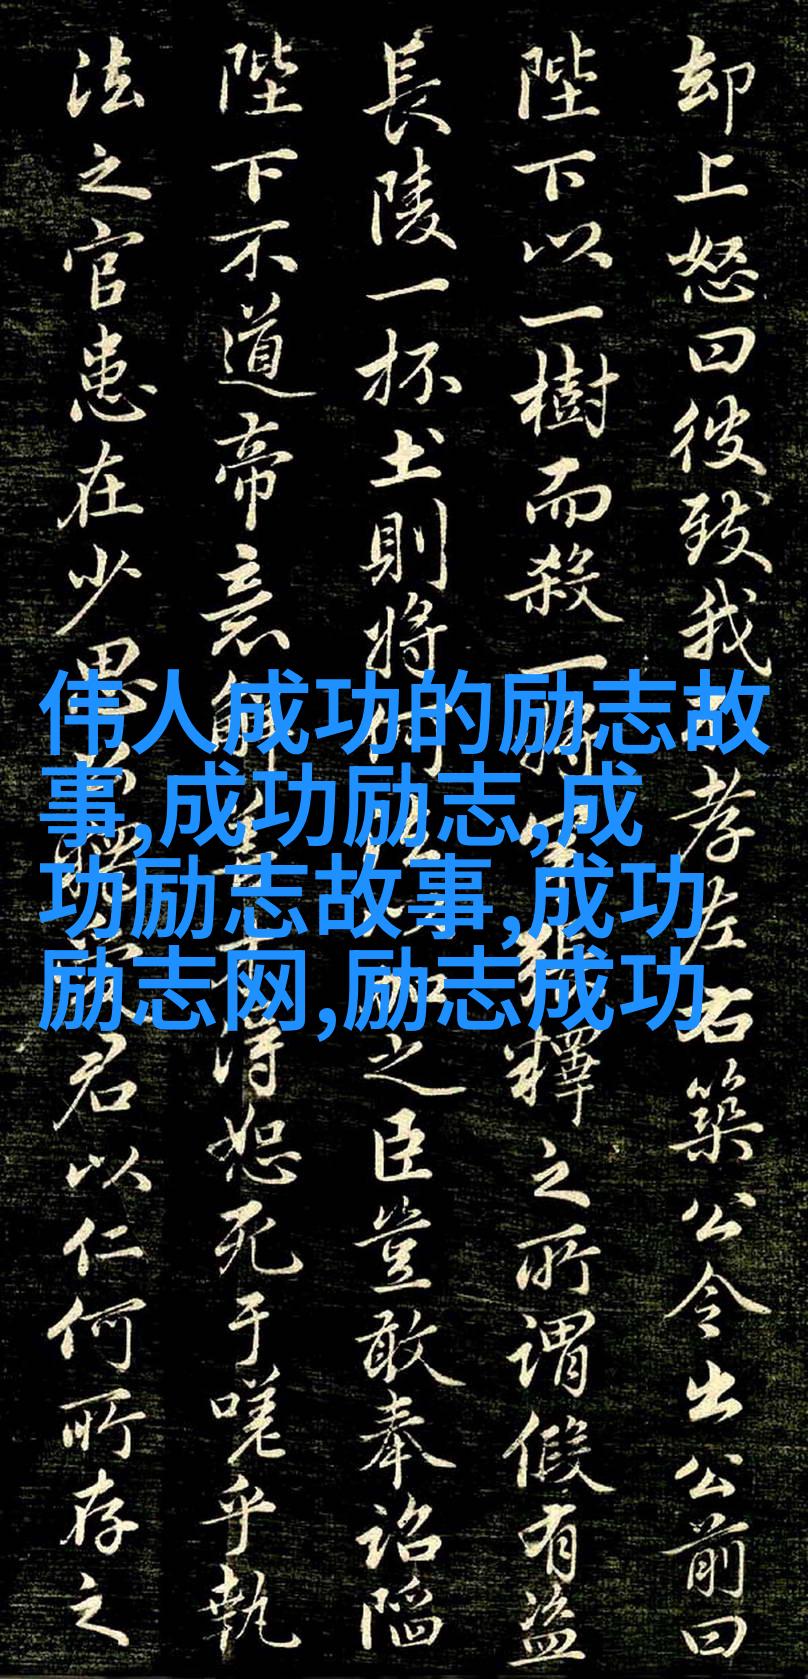 却上怒曰彼致我不孝左右築公令出公前曰
陛下以一樹而殺一將軍釋之所謂假有盗
長陵一抔土則將何法以加之臣豈敢奉詔陷
陛下不道帝意解善才得恕死于嗟乎執
法之官患在少恩公寬君以仁何所存之
伟人成功的励志故
事,成功励志,成
功励志故事,成功
励志网,励志成功